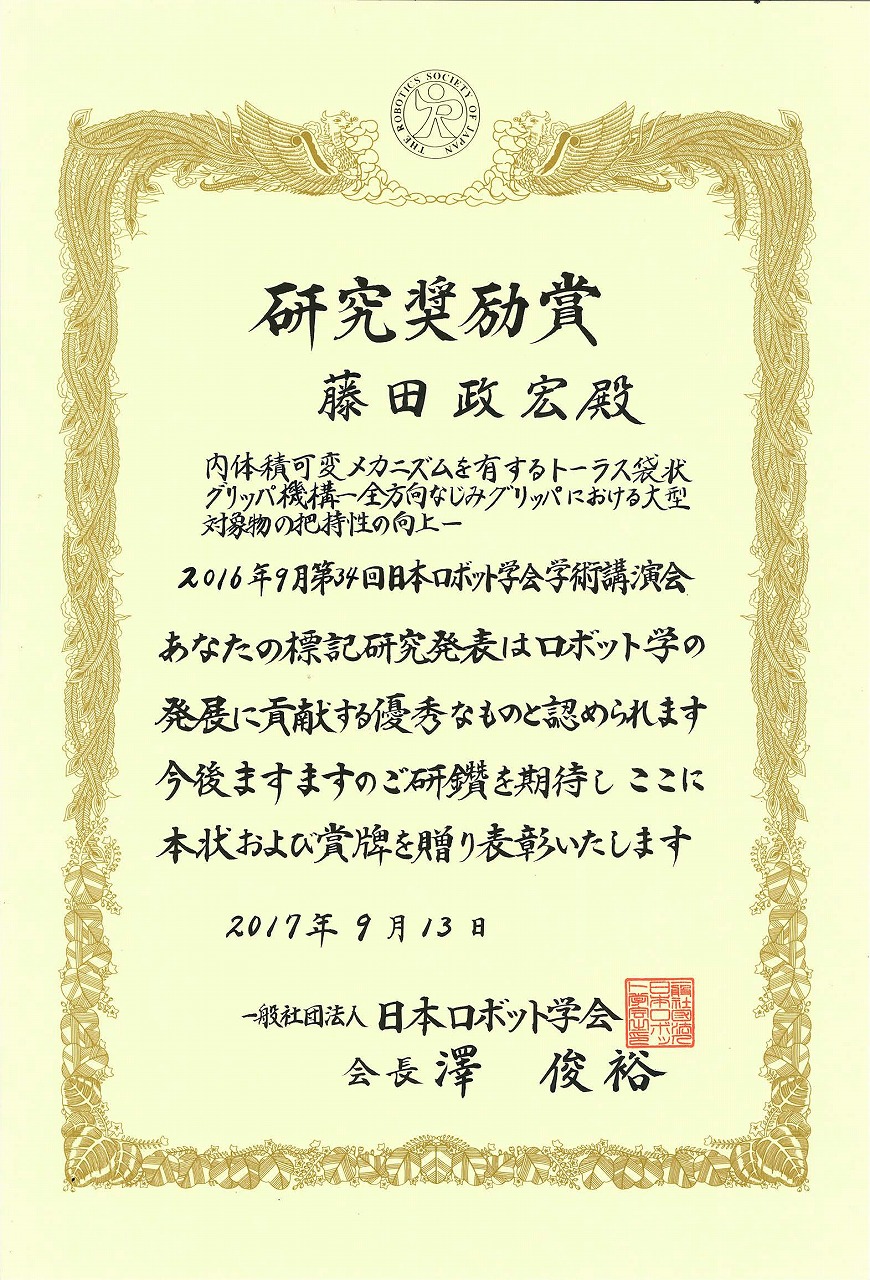 THE ROBOTICS SOCIETY OF JAPAN
研究奨励賞
藤田政宏殿
内体積可変メカニズムを有するトーラス袋状
グリッパ機構ー全方向なじみグリッパにおける大型
対象物の把持性の向上ー
2016年9月第34回日本ロボット学会学術講演会
あなたの標記研究発表はロボット学の
発展に貢献する優秀なものと認められます
今後ますますのご研鑽を期待し ここに
本状および賞牌を贈り表彰いたします
2017年9月13日
一般社団法人 日本ロボット学会
会長 澤 俊裕